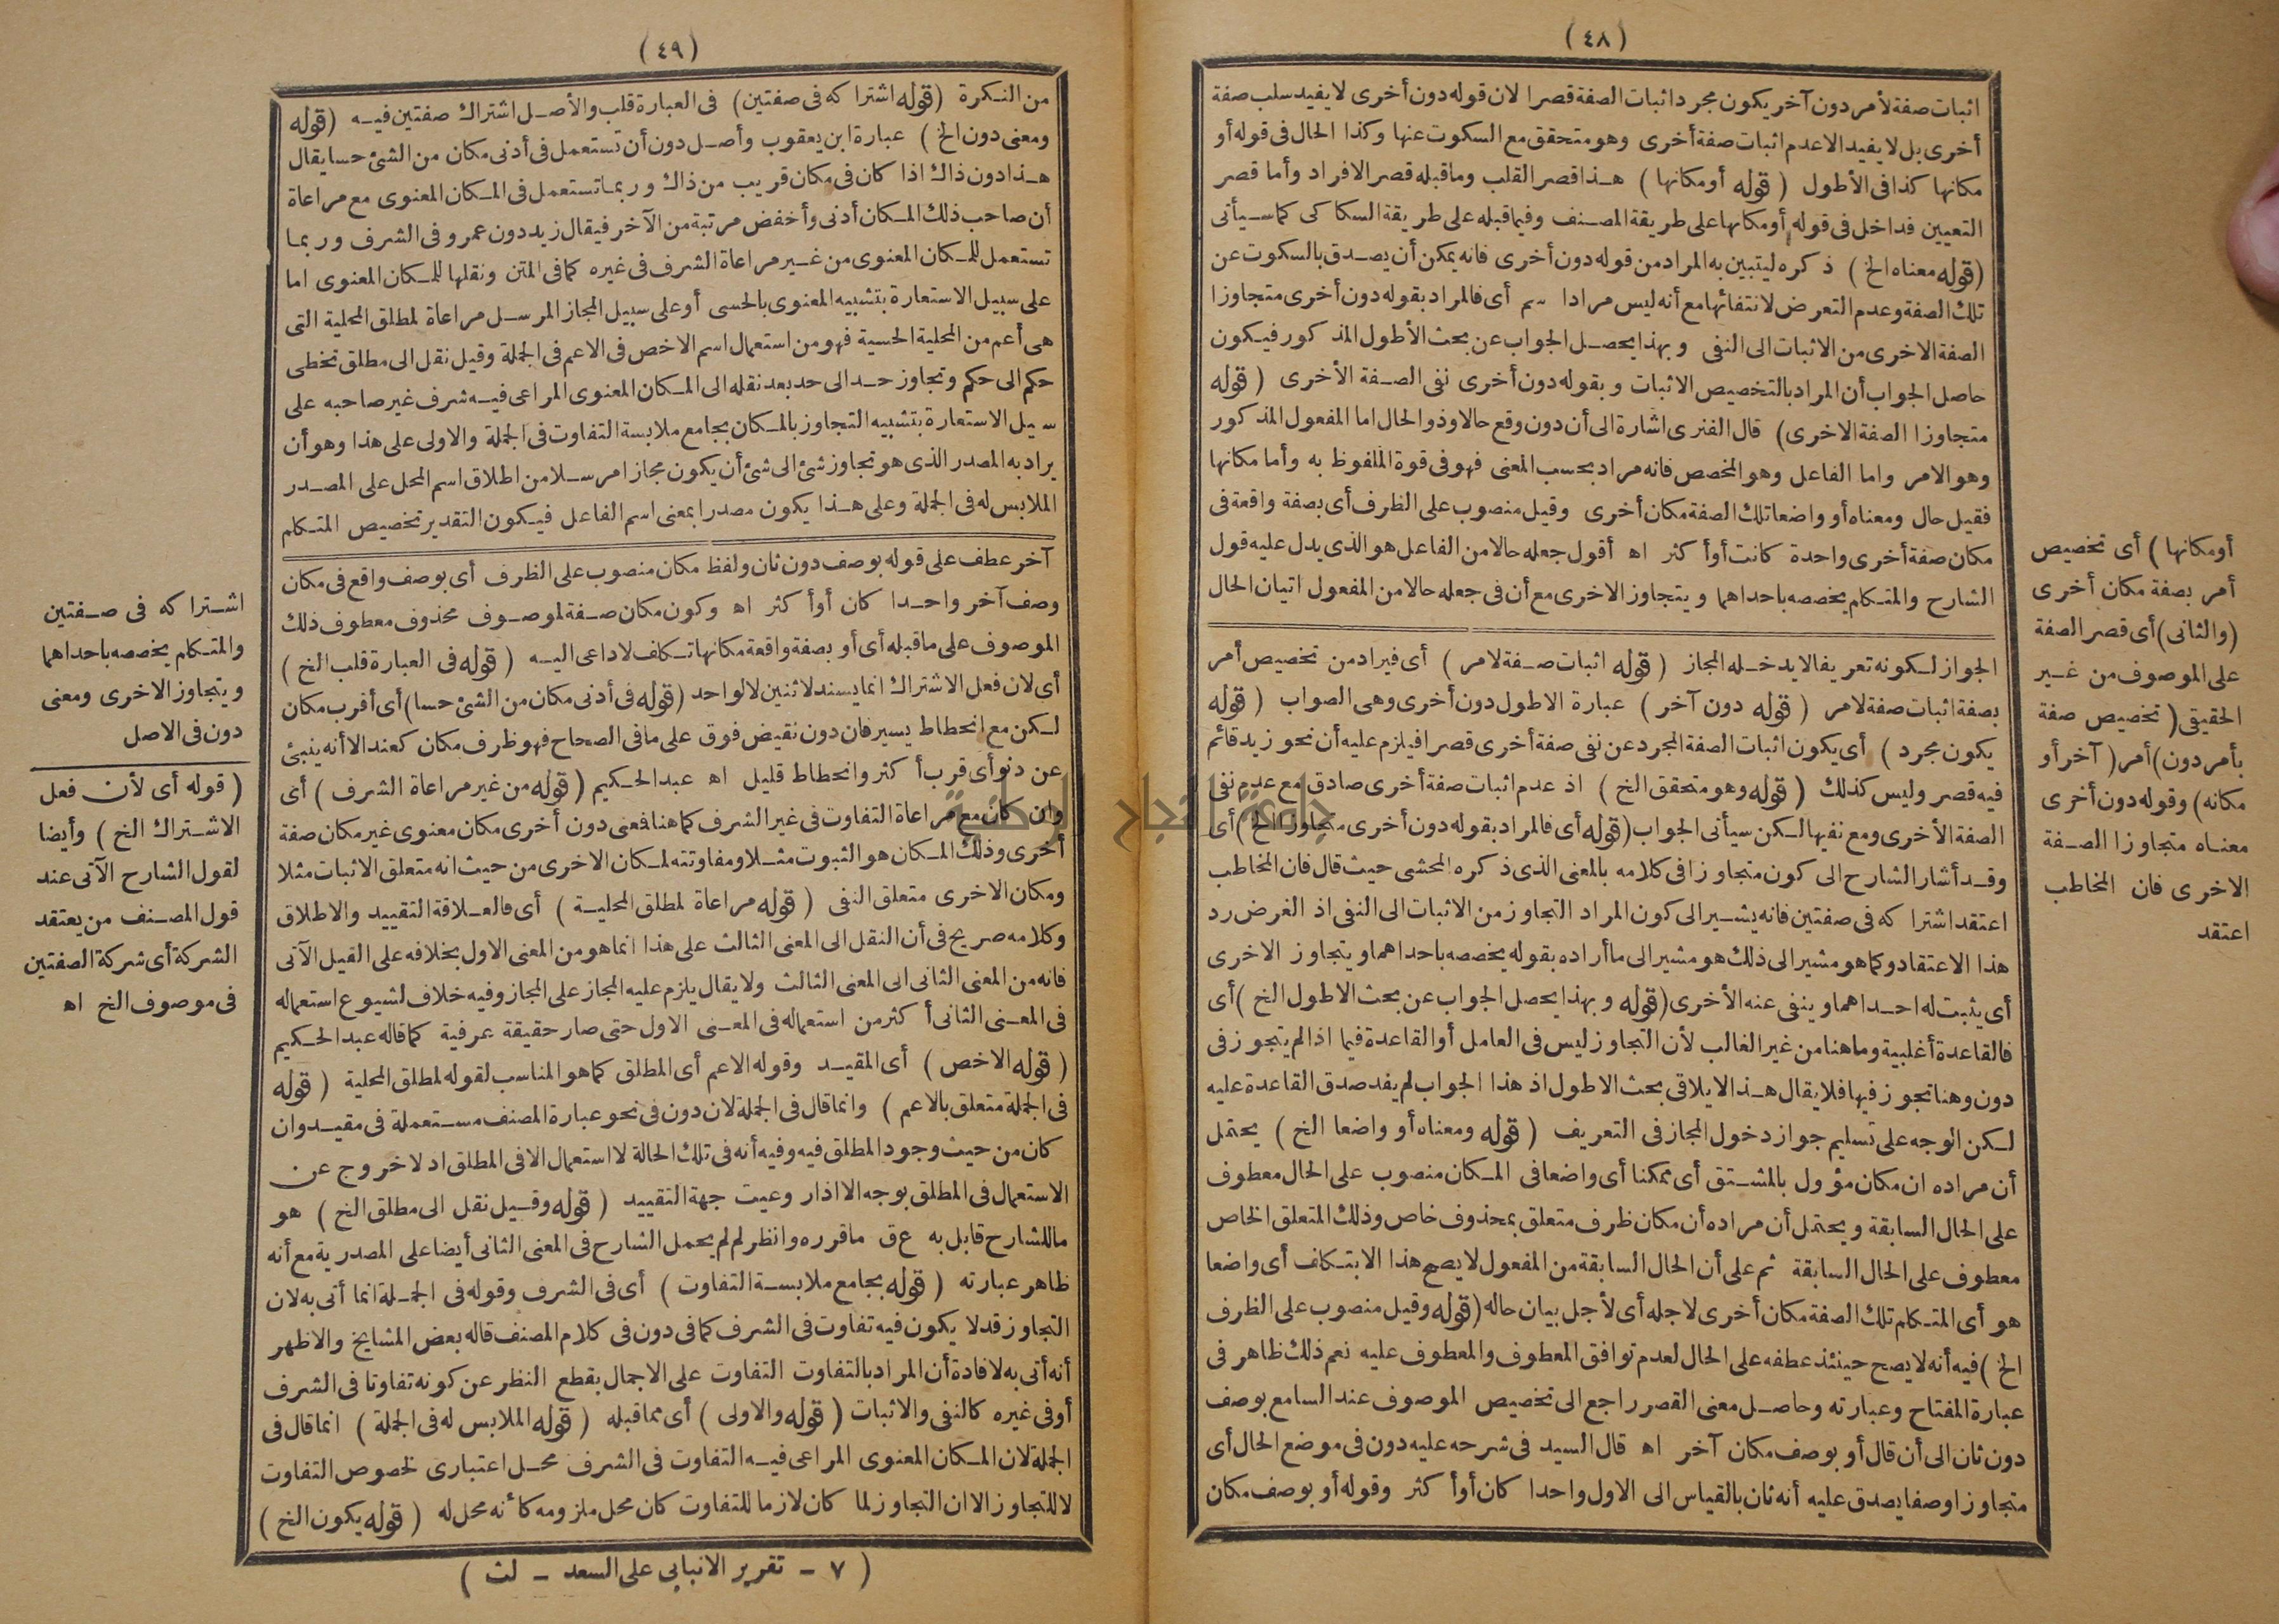 (٤٨)
اثبات صفة لأمر دون آخر يكون مجرد اثبات الصفة قصرا لان قوله دون أخرى لا يفيد سلب صفة
أخرى بل لا يفيد الا عدم اثبات صفة أخرى وهو متحقق مع السكوت عنها وكذا الحال فى قوله أو
مكانها كذا فى الأطول (قوله أو مكانها) هذا قصر القلب وما قبله قصر الافراد وأما قصر
التعيين فداخل فى قوله أو مكانها على طريقة المصنف وفيما قبله على طريقة السكاكى كما سيأتى
(قوله معناه الخ) ذكره ليتبين به المراد من قوله دون أخرى فانه يمكن أن يصدق بالسكوت عن
تلك الصفة وعدم التعرض لانتفائها مع أنه ليس مرادا سم أى فالمراد بقوله دون أخرى متجاوزا
الصفة الاخرى من الاثبات الى النفى وبهذا يحصل الجواب عن بحث الأطول المذكور فيكون
حاصل الجواب أن المراد بالتخصيص الاثبات وبقوله دون أخرى نفى الصفة الأخرى (قوله
متجاوزا الصفة الاخرى) قال الفنرى اشارة الى أن دون وقع حالا وذو الحال اما المفعول المذكور
وهو الامر واما الفاعل وهو المخصص فانه مراد بحسب المعنى فهو فى قوة الملفوظ به وأما مكانها
فقيل حال ومعناه أو واضعا تلك الصفة مكان أخرى وقيل منصوب على الظرف أى بصفة واقعة فى
مكان صفة أخرى واحدة كانت أو أكثر اه أقول جعله حالا من الفاعل هو الذى يدل عليه قول
الشارح والمتكلم يخصصه باحداهما ويتجاوز الاخرى مع أن فى جعله حالا من المفعول اتيان الحال
الجواز لكونه تعريفا لا يدخله المجاز (قوله اثبات صفة لامر) أى فيراد من تخصيص أمر
بصفة اثبات صفة لامر (قوله دون آخر) عبارة الاطول دون أخرى وهى الصواب (قوله
يكون مجرد) أى يكون اثبات الصفة المجرد عن نفى صفة أخرى قصرا فيلزم عليه أن نحو زيد قائم
فيه قصر وليس كذلك (قوله وهو متحقق الخ) اذ عدم اثبات صفة أخرى صادق مع عدم نفى
الصفة الأخرى ومع نفيها لكن سيأتى الجواب (قوله أى فالمراد بقوله دون أخرى متجاوزا الخ) أى
وقد أشار الشارح الى كون متجاوزا فى كلامه بالمعنى الذى ذكره المحشى حيث قال فان المخاطب
اعتقد اشتراكه فى صفتين فانه يشير الى كون المراد التجاوز من الاثبات الى النفى اذ الغرض رد
هذا الاعتقاد وكما هو مشير الى ذلك هو مشير الى ما أراده بقوله يخصصه باحداهما ويتجاوز الاخرى
أى يثبت له احداهما وينفى عنه الأخرى (قوله وبهذا يحصل الجواب عن بحث الاطول الخ) أى
فالقاعدة أغلبية وما هنا من غير الغالب لأن التجاوز ليس فى العامل أو القاعدة فيما اذا لم يتجوز فى
دون وهنا تجوز فيها فلا يقال هذا لا يلاقى بحث الاطول اذ هذا الجواب لم يفد صدق القاعدة عليه
لكن الوجه على تسليم جواز دخول المجاز فى التعريف (قوله ومعناه أو واضعا الخ) يحتمل
أن مراده ان مكان مؤول بالمشتق أى ممكنا أى واضعا فى المكان منصوب على الحال معطوف
على الحال السابقة ويحتمل أن مراده أن مكان ظرف متعلق بمحذوف خاص وذلك المتعلق الخاص
معطوف على الحال السابقة ثم على أن الحال السابقة من المفعول لا يصح هذا الا بتكلف أى واضعا
هو أى المتكلم تلك الصفة مكان أخرى لاجله أى لأجل بيان حاله (قوله وقيل منصوب على الظرف
الخ) فيه أنه لا يصح حينئذ عطفه على الحال لعدم توافق المعطوف والمعطوف عليه نعم ذلك ظاهر فى
عبارة المفتاح وعبارته وحاصل معنى القصر راجع الى تخصيص الموصوف عند السامع بوصف
دون ثان الى أن قال أو بوصف مكان آخر اه قال السيد فى شرحه عليه دون فى موضع الحال أى
متجاوزا وصفا يصدق عليه أنه ثان بالقياس الى الاول واحدا كان أو أكثر وقوله أو بوصف مكان
أو مكانها) أى تخصيص
أمر بصفة مكان أخرى
(والثانى) أى قصر الصفة
على الموصوف من غير
الحقيقى (تخصيص صفة
بأمر دون) أمر (آخر أو
مكانه) وقوله دون أخرى
معناه متجاوزا الصفة
الاخرى فان المخاطب
اعتقد
(٤٩)
من النكرة (قوله اشتراكه فى صفتين) فى العبارة قلب والأصل اشتراك صفتين فيه (قوله
ومعنى دون الخ) عبارة ابن يعقوب وأصل دون أن تستعمل فى أدنى مكان من الشئ حسا يقال
هذا دون ذاك اذا كان فى مكان قريب من ذاك وربما تستعمل فى المكان المعنوى مع مراعاة
أن صاحب ذلك المكان أدنى وأخفض مرتبة من الآخر فيقال زيد دون عمرو فى الشرف وربما
تستعمل للمكان المعنوى من غير مراعاة الشرف فى غيره كما فى المتن ونقلها للمكان المعنوى اما
على سبيل الاستعارة بتشبيه المعنوى بالحسى أو على سبيل المجاز المرسل مراعاة لمطلق المحلية التى
هى أعم من المحلية الحسية فهو من استعمال اسم الاخص فى الاعم فى الجملة وقيل نقل الى مطلق تخطى
حكم الى حكم وتجاوز حد الى حد بعد نقله الى المكان المعنوى المراعى فيه شرف غير صاحبه على
سبيل الاستعارة بتشبيه التجاوز بالمكان بجامع ملابسة التفاوت فى الجملة والاولى على هذا وهو أن
يراد به المصدر الذى هو تجاوز شئ الى شئ أن يكون مجازا مرسلا من اطلاق اسم المحل على المصدر
الملابس له فى الجملة وعلى هذا يكون مصدرا بمعنى اسم الفاعل فيكون التقدير تخصيص المتكلم
آخر عطف على قوله بوصف دون ثان ولفظ مكان منصوب على الظرف أى بوصف واقع فى مكان
وصف آخر واحدا كان أو أكثر اه وكون مكان صفة لموصوف محذوف معطوف ذلك
الموصوف على ما قبله أى أو بصفة واقعة مكانها تكلف لا داعى اليه (قوله فى العبارة قلب الخ)
أى لان فعل الاشتراك انما يسند لاثنين لا لواحد (قوله فى أدنى مكان من الشئ حسا) أى أقرب مكان
لكن مع انحطاط يسير فان دون نقيض فوق على ما فى الصحاح فهو ظرف مكان كعند الا أنه ينبئ
عن دنو أى قرب أكثر وانحطاط قليل اه عبد الحكيم (قوله من غير مراعاة الشرف) أى
وان كان مع مراعاة التفاوت فى غير الشرف كما هنا فمعنى دون أخرى مكان معنوى غير مكان صفة
أخرى وذلك المكان هو الثبوت مثلا ومفاوتته لمكان الاخرى من حيث انه متعلق الاثبات مثلا
ومكان الاخرى متعلق النفى (قوله مراعاة لمطلق المحلية) أى فالعلاقة التقييد والاطلاق
وكلامه صريح فى أن النقل الى المعنى الثالث على هذا انما هو من المعنى الاول بخلافه على القيل الآتى
فانه من المعنى الثانى الى المعنى الثالث ولا يقال يلزم عليه المجاز على المجاز وفيه خلاف لشيوع استعماله
فى المعنى الثانى أكثر من استعماله فى المعنى الاول حتى صار حقيقة عرفية كما قاله عبد الحكيم
(قوله الاخص) أى المقيد وقوله الاعم أى المطلق كما هو المناسب لقوله لمطلق المحلية (قوله
فى الجملة متعلق بالاعم) وانما قال فى الجملة لان دون فى نحو عبارة المصنف مستعملة فى مقيد وان
كان من حيث وجود المطلق فيه وفيه أنه فى تلك الحالة لا استعمال الا فى المطلق اذ لا خروج عن
الاستعمال فى المطلق بوجه الا اذا روعيت جهة التقييد (قوله وقيل نقل الى مطلق الخ) هو
ما للشارح قابل به ع ق ما قرره وانظر لم لم يحمل الشارح فى المعنى الثانى أيضا على المصدرية مع أنه
ظاهر عبارته (قوله بجامع ملابسة التفاوت) أى فى الشرف وقوله فى الجملة انما أتى به لان
التجاوز قد لا يكون فيه تفاوت فى الشرف كما فى دون فى كلام المصنف قاله بعض المشايخ والاظهر
أنه أتى به لافادة أن المراد بالتفاوت التفاوت على الاجمال بقطع النظر عن كونه تفاوتا فى الشرف
أو فى غيره كالنفى والاثبات (قوله والاولى) أى مما قبله (قوله الملابس له فى الجملة) انما قال فى
الجملة لان المكان المعنوى المراعى فيه التفاوت فى الشرف محل اعتبارى لخصوص التفاوت
لا للتجاوز الا ان التجاوز لما كان لازما للتفاوت كان محل ملزومه كأنه محل له (قوله يكون الخ)
اشتراكه فى صفتين
والمتكلم يخصصه باحداهما
ويتجاوز الاخرى ومعنى
دون فى الاصل
(قوله أى لأن فعل
الاشتراك الخ) وأيضا
لقول الشارح الآتى عند
قول المصنف من يعتقد
الشركة أى شركة الصفتين
فى موصوف الخ اه
(٧ - تقرير الانبابى على السعد - لث)